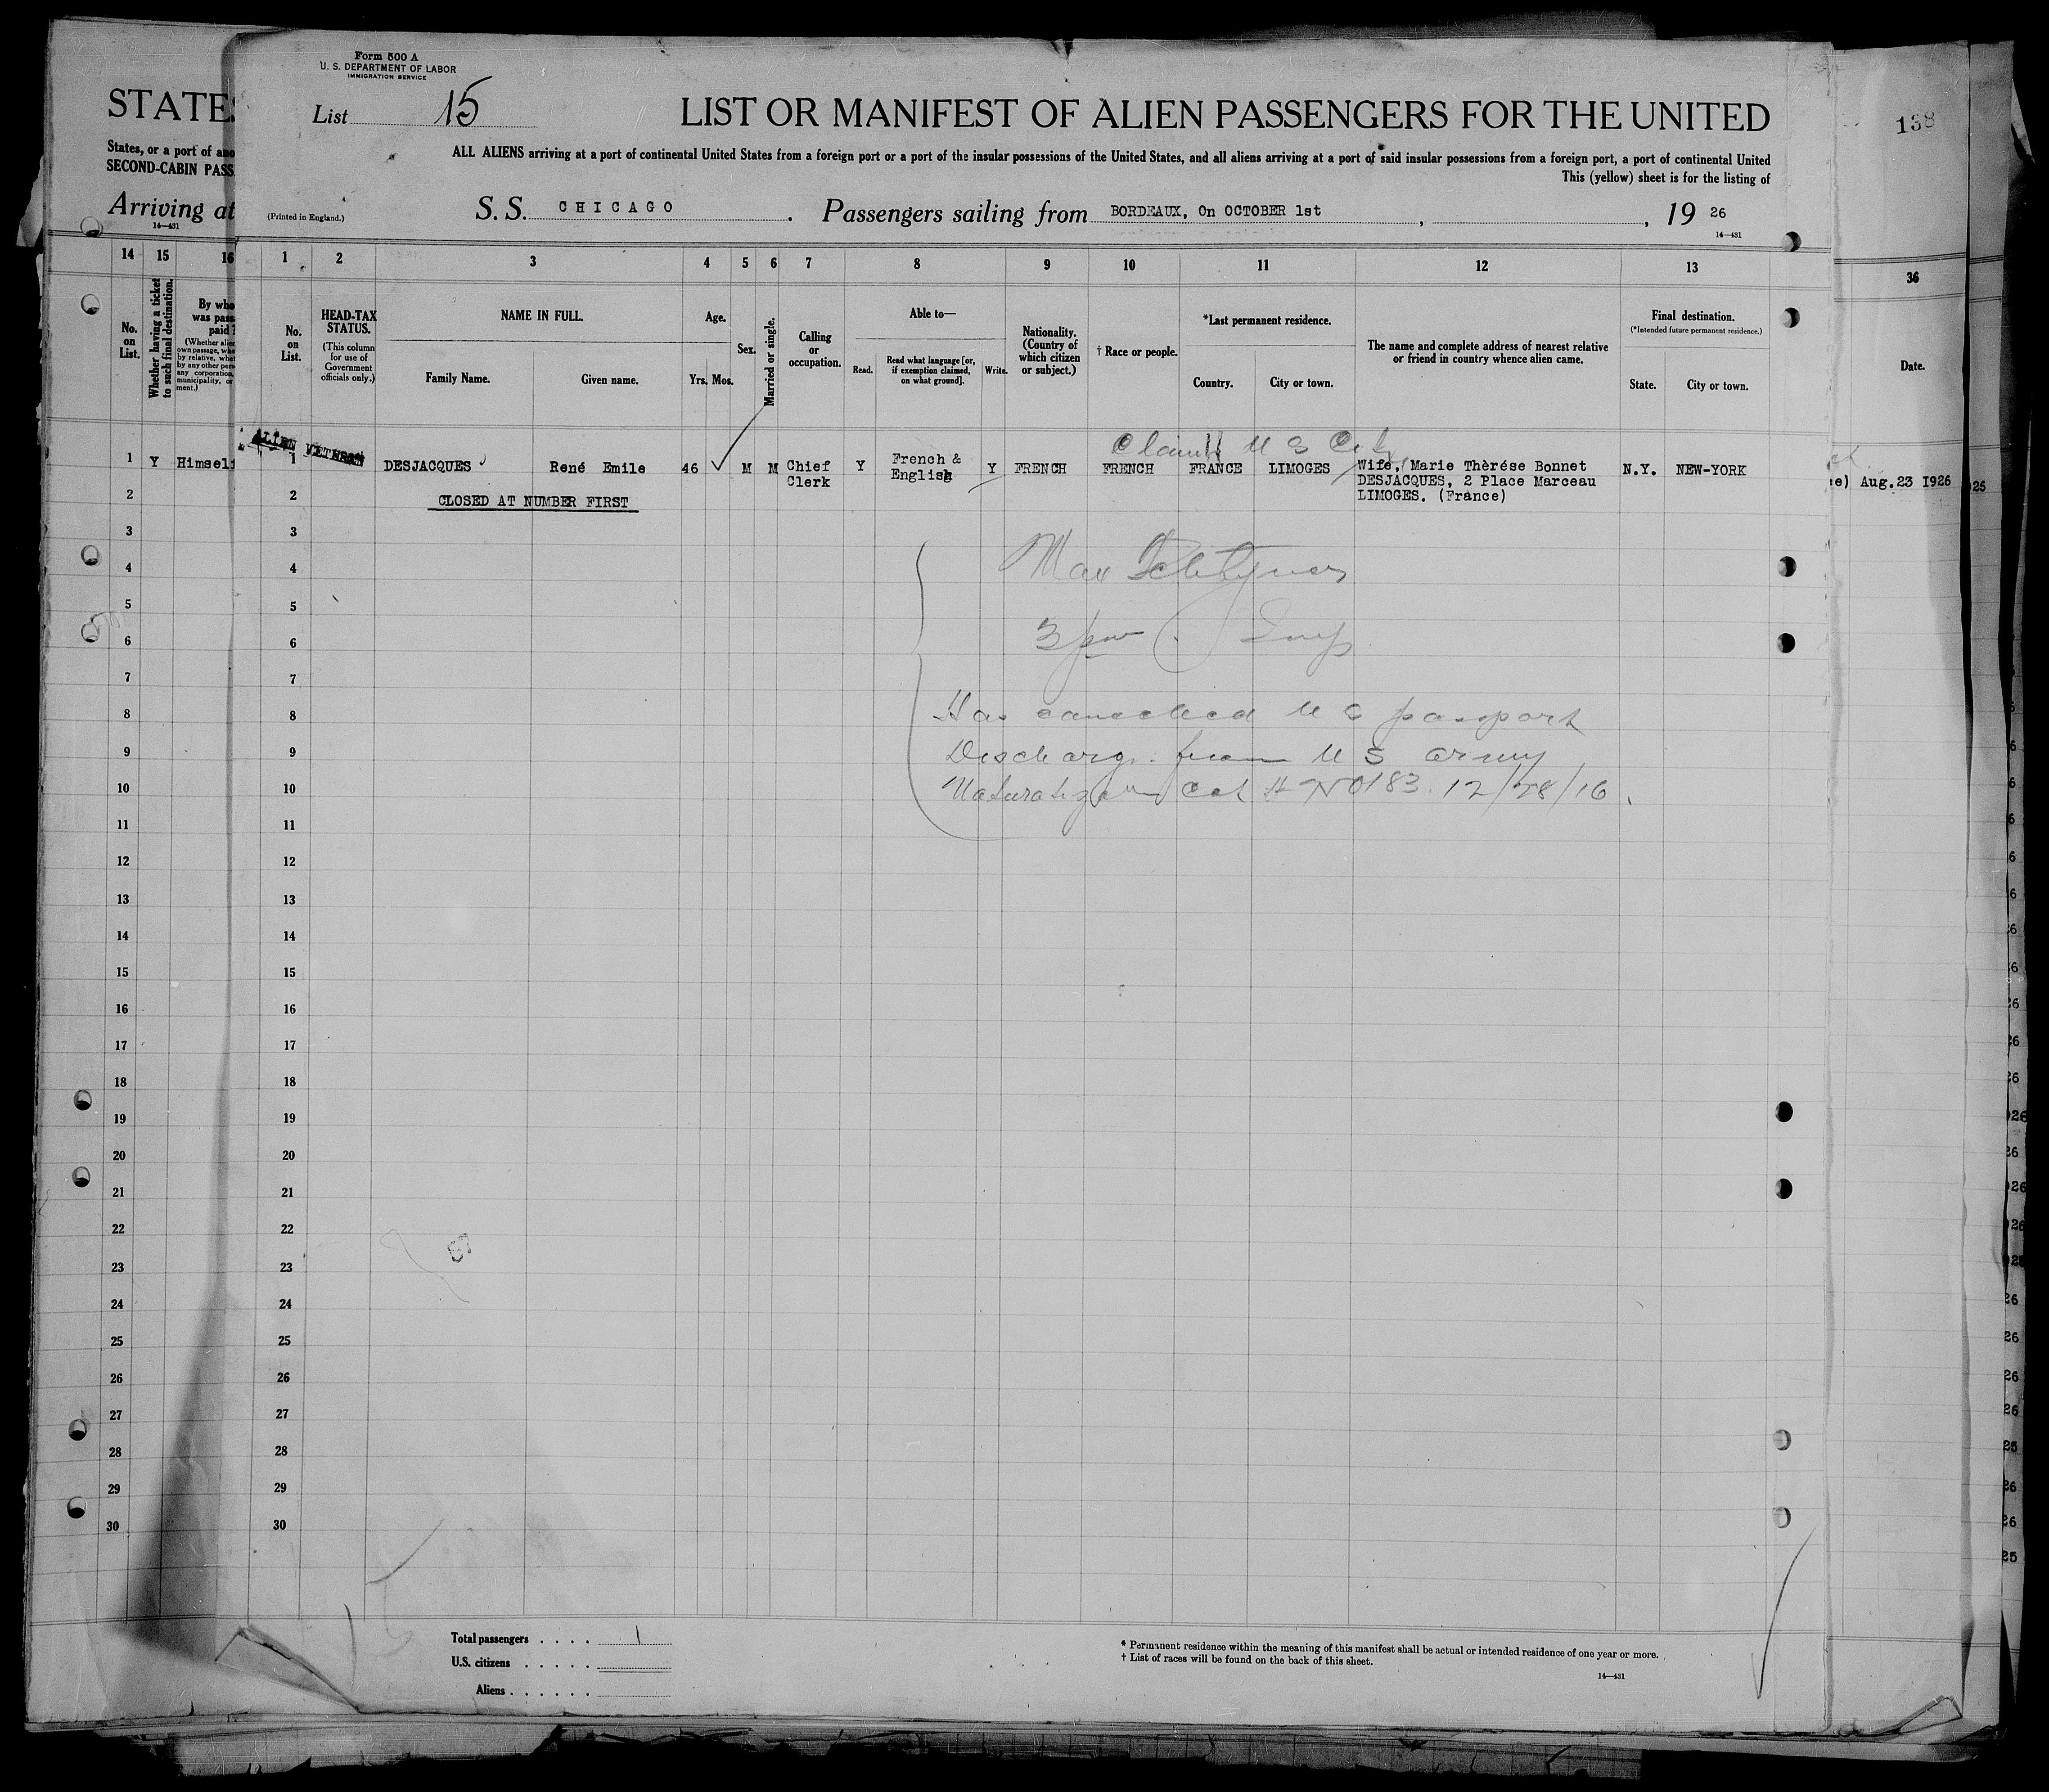 Form 500 A
U. S. DEPARTMENT OF LABOR
IMMIGRATION SERVICE
List 15
LIST OR MANIFEST OF ALIEN PASSENGERS FOR THE UNITED
ALL ALIENS arriving at a port of continental United States from a foreign port or a port of the insular possessions of the United States, and all aliens arriving at a port of said insular possessions from a foreign port, a port of continental United
This (yellow) sheet is for the listing of
(Printed in England.)
S. S. CHICAGO . Passengers sailing from BORDEAUX, On OCTOBER 1st , , 19 26
14—431
STATES
States, or a port of ano
SECOND-CABIN PASS
Arriving at
14—431
138
14 15 16
No. on List.
Whether having a ticket to such final destination.
By who
was pass
paid?
(Whether alien
own passage, whe
by relative, whet
by any other pers
any corporation,
municipality, or
ment.)
1 2 3 4 5 6 7 8 9 10 11 12 13
36
No. on List.
HEAD-TAX STATUS.
(This column for use of Government officials only.)
NAME IN FULL.
Family Name. Given name.
Age.
Yrs. Mos.
Sex.
Married or single.
Calling or occupation.
Able to—
Read. Read what language [or, if exemption claimed, on what ground]. Write.
Nationality. (Country of which citizen or subject.)
† Race or people.
*Last permanent residence.
Country. City or town.
The name and complete address of nearest relative or friend in country whence alien came.
Final destination.
(*Intended future permanent residence.)
State. City or town.
Date.
ALIEN VETERAN
Claims U S Cit
1 Y Himself
1 DESJACQUES René Emile 46 M M Chief Clerk Y French & English Y FRENCH FRENCH FRANCE LIMOGES Wife, Marie Thèrése Bonnet DESJACQUES, 2 Place Marceau LIMOGES. (France) N.Y. NEW-YORK
e) Aug.23 1926
CLOSED AT NUMBER FIRST
2 2
3 3
4 4
5 5
6 6
3 pm
7 7
8 8
Has cancelled U S passport
9 9
Discharge from U S army
10 10
Naturalization Cert # 183. 12/28/16
11 11
12 12
13 13
14 14
15 15
16 16
17 17
18 18
19 19
20 20
21 21
22 22
23 23
24 24
25 25
26 26
27 27
28 28
29 29
30 30
Total passengers . . . . 1
U.S. citizens . . . . .
Aliens . . . . . .
* Permanent residence within the meaning of this manifest shall be actual or intended residence of one year or more.
† List of races will be found on the back of this sheet.
14—431